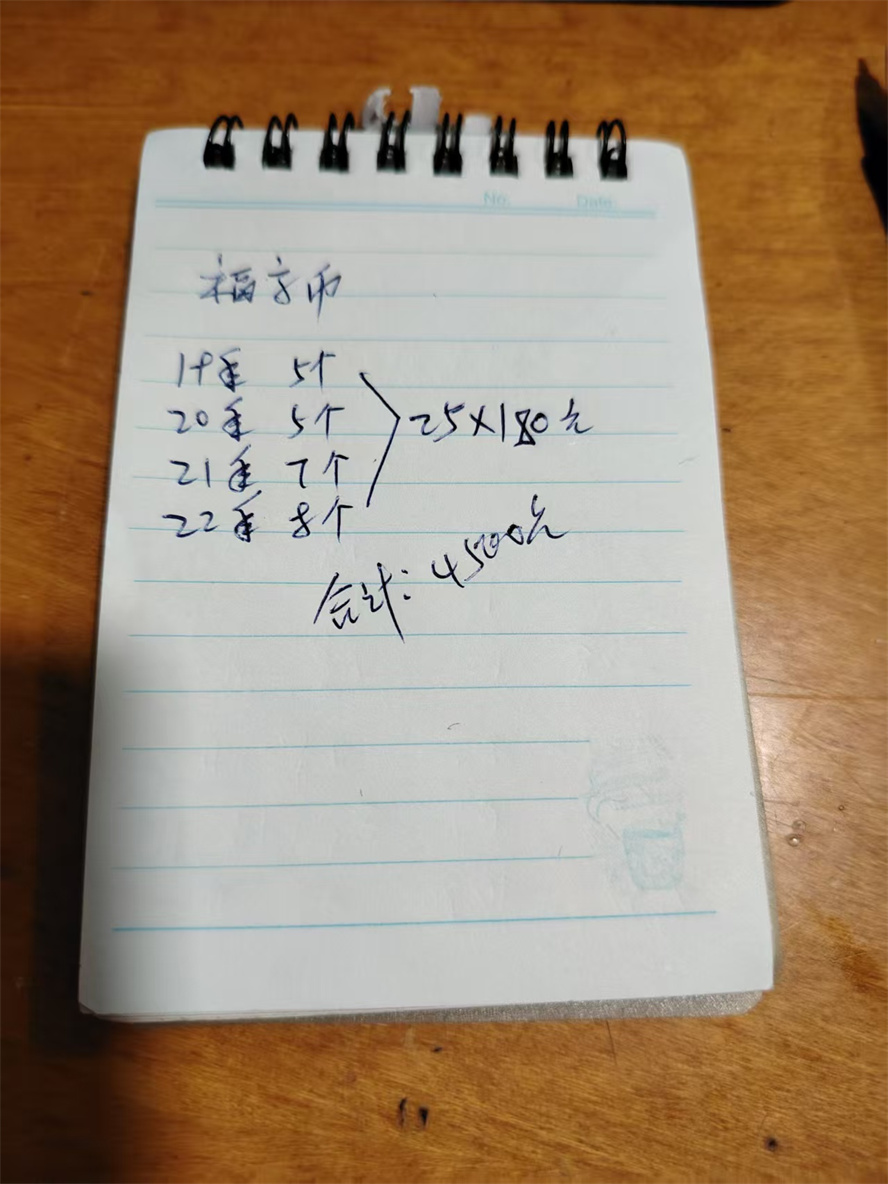 No. Date.
福字币
19年 5个
20年 5个
21年 7个
22年 8个
25×180元
合计:4500元